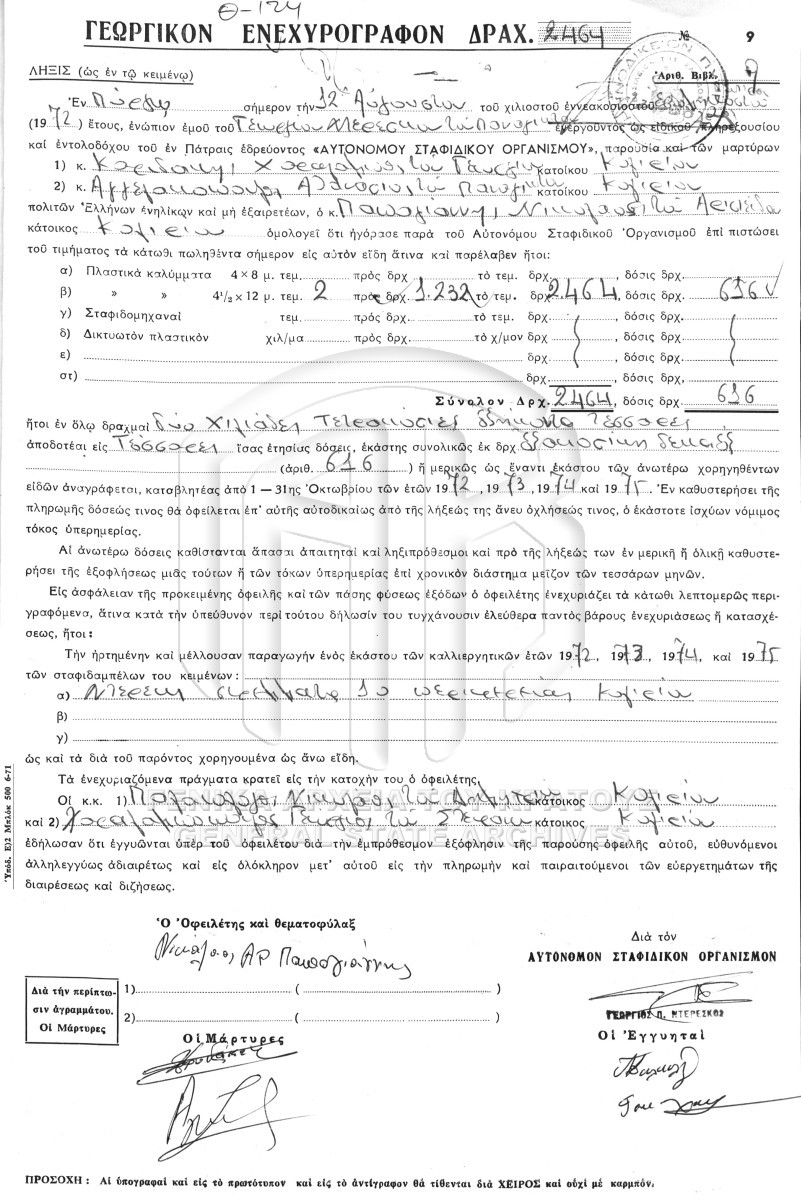 Θ-124
ΓΕΩΡΓΙΚΟΝ ΕΝΕΧΥΡΟΓΡΑΦΟΝ ΔΡΑΧ. 2464 № 9
ΛΗΞΙΣ (ὡς ἐν τῷ κειμένῳ) Ἀριθ. Βιβλ. 9
Ἐν Πύργῳ σήμερον τὴν 12 Αὐγούστου τοῦ χιλιοστοῦ ἐννεακοσιοστοῦ
(1972) ἔτους, ἐνώπιον ἐμοῦ τοῦ Γεωργίου Ντερέσκου τοῦ Παναγιώτου ἐνεργοῦντος ὡς εἰδικοῦ πληρεξουσίου
καὶ ἐντολοδόχου τοῦ ἐν Πάτραις ἑδρεύοντος «ΑΥΤΟΝΟΜΟΥ ΣΤΑΦΙΔΙΚΟΥ ΟΡΓΑΝΙΣΜΟΥ», παρουσίᾳ καὶ τῶν μαρτύρων
1) κ. τοῦ Γεωργίου κατοίκου
2) κ. τοῦ Παναγιώτου κατοίκου
πολιτῶν Ἑλλήνων ἐνηλίκων καὶ μὴ ἐξαιρετέων, ὁ κ. Παπαγιάννης Νικόλαος τοῦ
κάτοικος ὁμολογεῖ ὅτι ἠγόρασε παρὰ τοῦ Αὐτονόμου Σταφιδικοῦ Ὀργανισμοῦ ἐπὶ πιστώσει
τοῦ τιμήματος τὰ κάτωθι πωληθέντα σήμερον εἰς αὐτὸν εἴδη ἅτινα καὶ παρέλαβεν ἤτοι:
α) Πλαστικὰ καλύμματα 4×8 μ. τεμ. πρὸς δρχ τὸ τεμ. δρχ. , δόσις δρχ.
β) » » 4¹/₂ × 12 μ. τεμ. 2 πρὸς δρχ. 1.232 τὸ τεμ. δρχ. 2.464, δόσις δρχ. 616
γ) Σταφιδομηχαναὶ τεμ. πρὸς δρχ. τὸ τεμ. δρχ , δόσις δρχ.
δ) Δικτυωτὸν πλαστικὸν χιλ/μα πρὸς δρχ. τὸ χ/μον δρχ , δόσις δρχ.
ε) δρχ , δόσις δρχ.
στ) δρχ. , δόσις δρχ,
Σύνολον Δρχ. 2464, δόσις δρχ. 616
ἤτοι ἐν ὅλῳ δραχμαὶ δύο χιλιάδες τετρακόσιες ἑξήντα τέσσαρες
ἀποδοτέαι εἰς τέσσαρες ἴσας ἐτησίας δόσεις, ἑκάστης συνολικῶς ἐκ δρχ ἑξακοσίων δεκαέξ
(ἀριθ. 616) ἢ μερικῶς ὡς ἔναντι ἑκάστου τῶν ἀνωτέρω χορηγηθέντων
εἰδῶν ἀναγράφεται, καταβλητέας ἀπὸ 1 — 31ης Ὀκτωβρίου τῶν ἐτῶν 1972, 1973, 1974 καὶ 1975. Ἐν καθυστερήσει τῆς
πληρωμῆς δόσεώς τινος θὰ ὀφείλεται ἐπ' αὐτῆς αὐτοδικαίως ἀπὸ τῆς λήξεώς της ἄνευ ὀχλήσεώς τινος, ὁ ἑκάστοτε ἰσχύων νόμιμος
τόκος ὑπερημερίας.
Αἱ ἀνωτέρω δόσεις καθίστανται ἅπασαι ἀπαιτηταὶ καὶ ληξιπρόθεσμοι καὶ πρὸ τῆς λήξεώς των ἐν μερικῇ ἢ ὁλικῇ καθυστε-
ρήσει τῆς ἐξοφλήσεως μιᾶς τούτων ἢ τῶν τόκων ὑπερημερίας ἐπὶ χρονικὸν διάστημα μεῖζον τῶν τεσσάρων μηνῶν.
Εἰς ἀσφάλειαν τῆς προκειμένης ὀφειλῆς καὶ τῶν πάσης φύσεως ἐξόδων ὁ ὀφειλέτης ἐνεχυριάζει τὰ κάτωθι λεπτομερῶς περι-
γραφόμενα, ἅτινα κατὰ τὴν ὑπεύθυνον περὶ τούτου δήλωσίν του τυγχάνουσιν ἐλεύθερα παντὸς βάρους ἐνεχυριάσεως ἢ κατασχέ-
σεως, ἤτοι:
Τὴν ἠρτημένην καὶ μέλλουσαν παραγωγὴν ἑνὸς ἑκάστου τῶν καλλιεργητικῶν ἐτῶν 1972, 1973, 1974, καὶ 1975
τῶν σταφιδαμπέλων του κειμένων:
α) στρέμματα 10 περιφερείας
β)
γ)
ὡς καὶ τὰ διὰ τοῦ παρόντος χορηγούμενα ὡς ἄνω εἴδη.
Τὰ ἐνεχυριαζόμενα πράγματα κρατεῖ εἰς τὴν κατοχήν του ὁ ὀφειλέτης,
Οἱ κ.κ. 1) τοῦ Δημητρίου κάτοικος
καὶ 2) Γεώργιος τοῦ κάτοικος
ἐδήλωσαν ὅτι ἐγγυῶνται ὑπὲρ τοῦ ὀφειλέτου διὰ τὴν ἐμπρόθεσμον ἐξόφλησιν τῆς παρούσης ὀφειλῆς αὐτοῦ, εὐθυνόμενοι
ἀλληλεγγύως ἀδιαιρέτως καὶ εἰς ὁλόκληρον μετ' αὐτοῦ εἰς τὴν πληρωμὴν καὶ παιραιτούμενοι τῶν εὐεργετημάτων τῆς
διαιρέσεως καὶ διζήσεως.
ΓΕΝΙΚΑ ΑΡΧΕΙΑ ΤΟΥ ΚΡΑΤΟΥΣ
GENERAL STATE ARCHIVES
Ὑπόδ. Ε)2 Μπλὸκ 500 6-71
Ὁ Ὀφειλέτης καὶ θεματοφύλαξ
Νικόλαος ΑΡ Παπαγιάννης
Διὰ τὸν
ΑΥΤΟΝΟΜΟΝ ΣΤΑΦΙΔΙΚΟΝ ΟΡΓΑΝΙΣΜΟΝ
ΓΕΩΡΓΙΟΣ Π. ΝΤΕΡΕΣΚΟΣ
Διὰ τὴν περίπτω-
σιν ἀγραμμάτου.
Οἱ Μάρτυρες
1) ( )
2) ( )
Οἱ Μάρτυρες
Οἱ Ἐγγυηταὶ
ΠΡΟΣΟΧΗ: Αἱ ὑπογραφαὶ καὶ εἰς τὸ πρωτότυπον καὶ εἰς τὸ ἀντίγραφον θὰ τίθενται διὰ ΧΕΙΡΟΣ καὶ οὐχὶ μὲ καρμπόν.